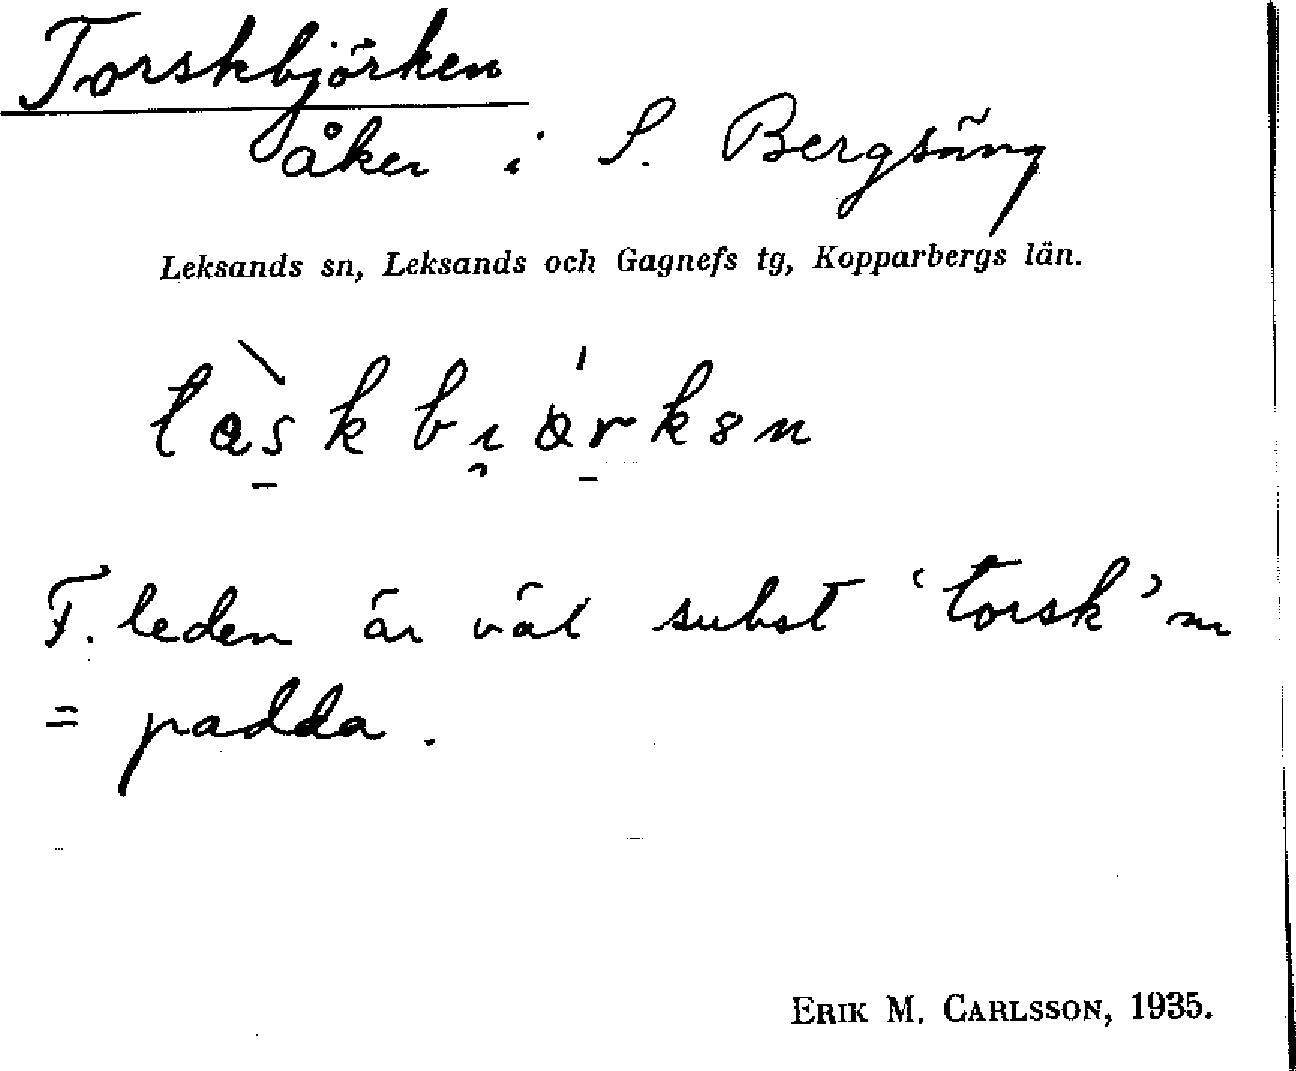 Torskbjörken
åker i S. Bergsäng
Leksands sn, Leksands och Gagnefs tg, Kopparbergs län.
F. leden är väl subst 'torsk' m
= padda.
ERIK M. CARLSSON, 1935.